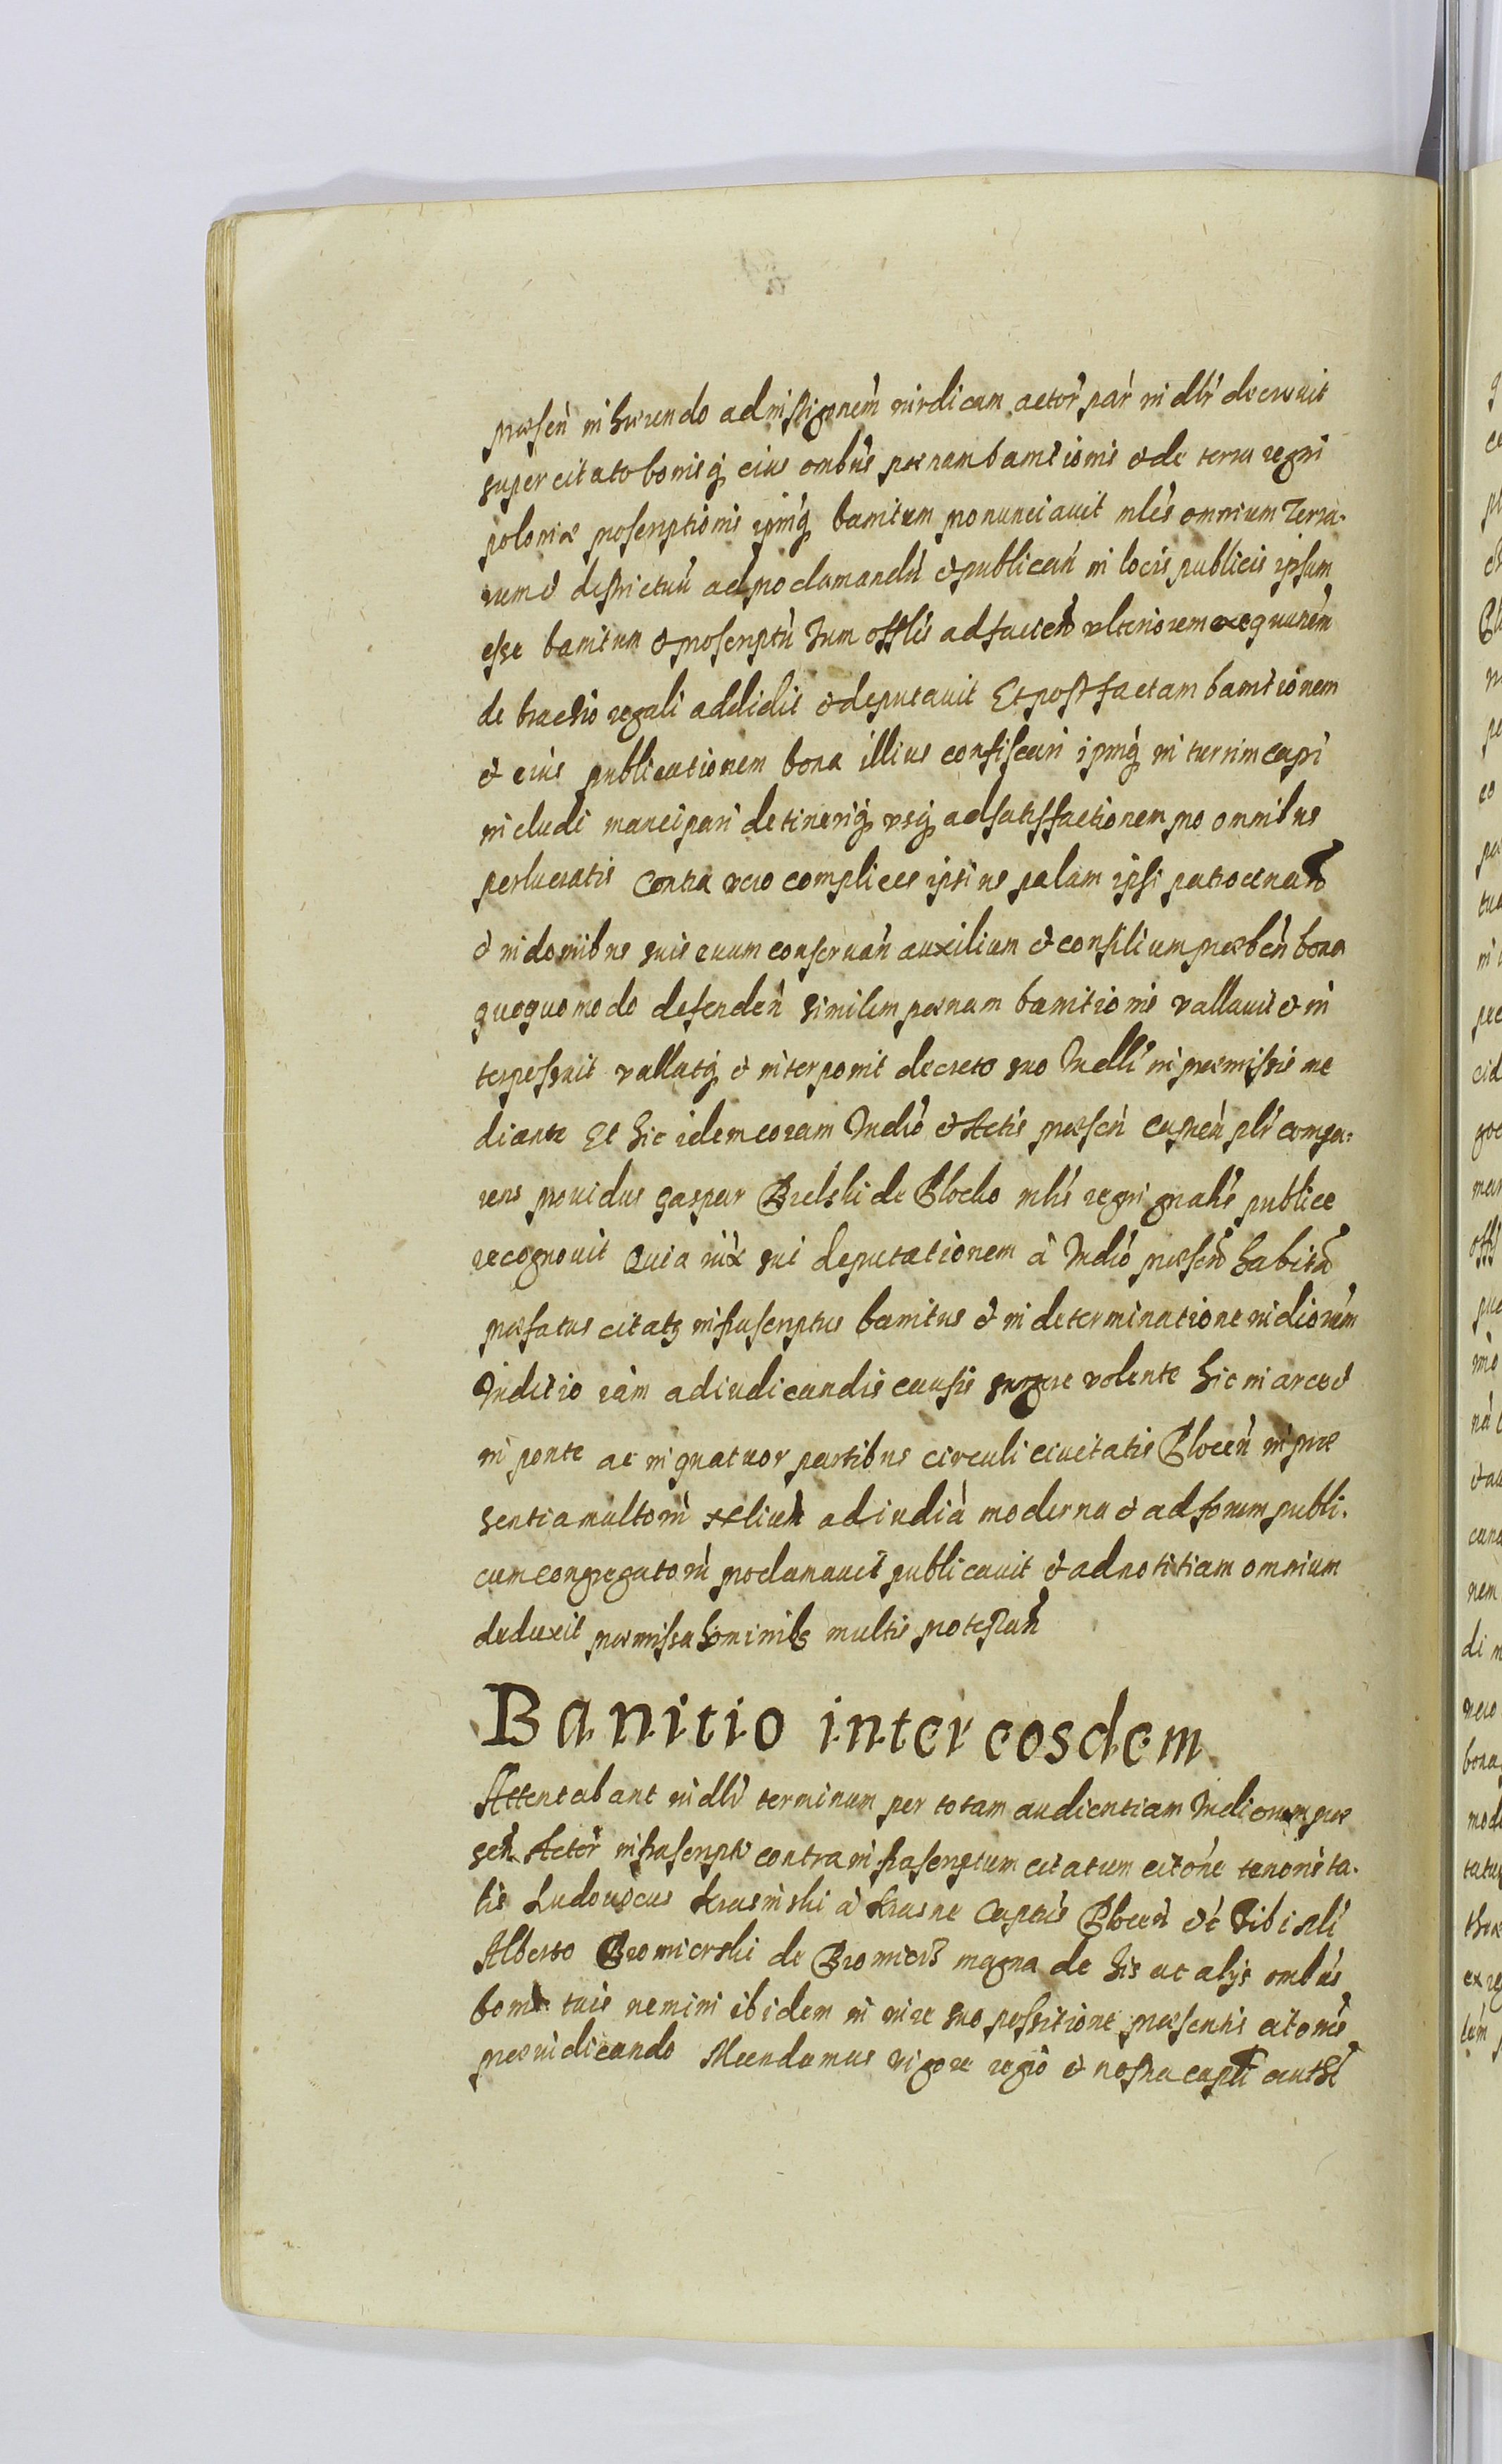 præsen̄ inhærendo ad instigonem̄ iuridicam actor̄ par̄ in dli decrevit
super citato bonisq̨ eius ombus pœnam banitionis & de terra regni
poloniæ proscriptionis ipmq̨ banitum pronunciavit mlis omnium Terra-
rum & districtuu̇ ad proclamandu̇ & publican̄ in locis publicis ipsum
esse banitum & proscriptu̇ Tum offlis ad facien̄ ulteriorem exequnem̄
de brachio regali addidit & deputavit Et post factam banitionem
& eius publicationem bona illius confiscari ipmq̨ in turrim capi
includi mancipari detineriq̨ usq̨ ad satisfactionem pro omnibus
perlucratis Contra vero complices ipsius palam ipsi patrocinan̄
& in domibus suis evum conservan̄ auxilium & consilium præben̄ bona
quoquomodo defenden̄ similem pœnam banitionis vallavit & in
terpossuit vallatq̨ & interponit decreto suo Indli in præmissis me
diante Et hic idem coram Indio & Actis præsen̄ Capnen̄ pli compa-
rens providus Gaspar Bielski de Plocko mlis regni gnalis publice
recognovit Quia iux sui deputationem à Indio præsen̄ habita
præfatus citatq infrascriptus banitus & in determinatione indiorum
Inditio iam adiudicandis causis surgere volente hic in arce &
in ponte ac in quatuor partibus circuli civitatis Plocen̄ in præ
sentia multoru̇ nobelium ad iudia moderna & ad forum publi-
cum congregatoru̇ proclamavit publicavit & ad notitiam omnium
deduxit præmissa hominibs multis protestan̄
Banitio inter eosdem
Attentabant indli terminum per totam audientiam Indiorum præ
sen̄ Actor̄ infrascripti contra infrascriptum citatum citone tenoris ta-
lis Ludovicus Krasinski à Krasne Captus Plocen̄ &c Tibi nli
Alberto Bromierski de Bromierz magna de his ac alijs ombus
bonis tuis nemini ibidem in iure suo possitione præsentis citonis
præiudicando Mandamus vigore regio & nostra capli auth